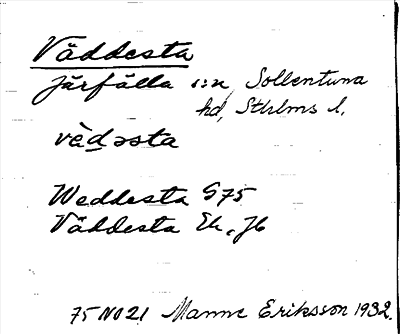 Väddesta
Järfälla s:n, Sollentuna
hd, Sthlms l.
vèdəsta
Weddesta G75
Väddesta Ek, Jb
75 NO 21 Manne Eriksson 1932.